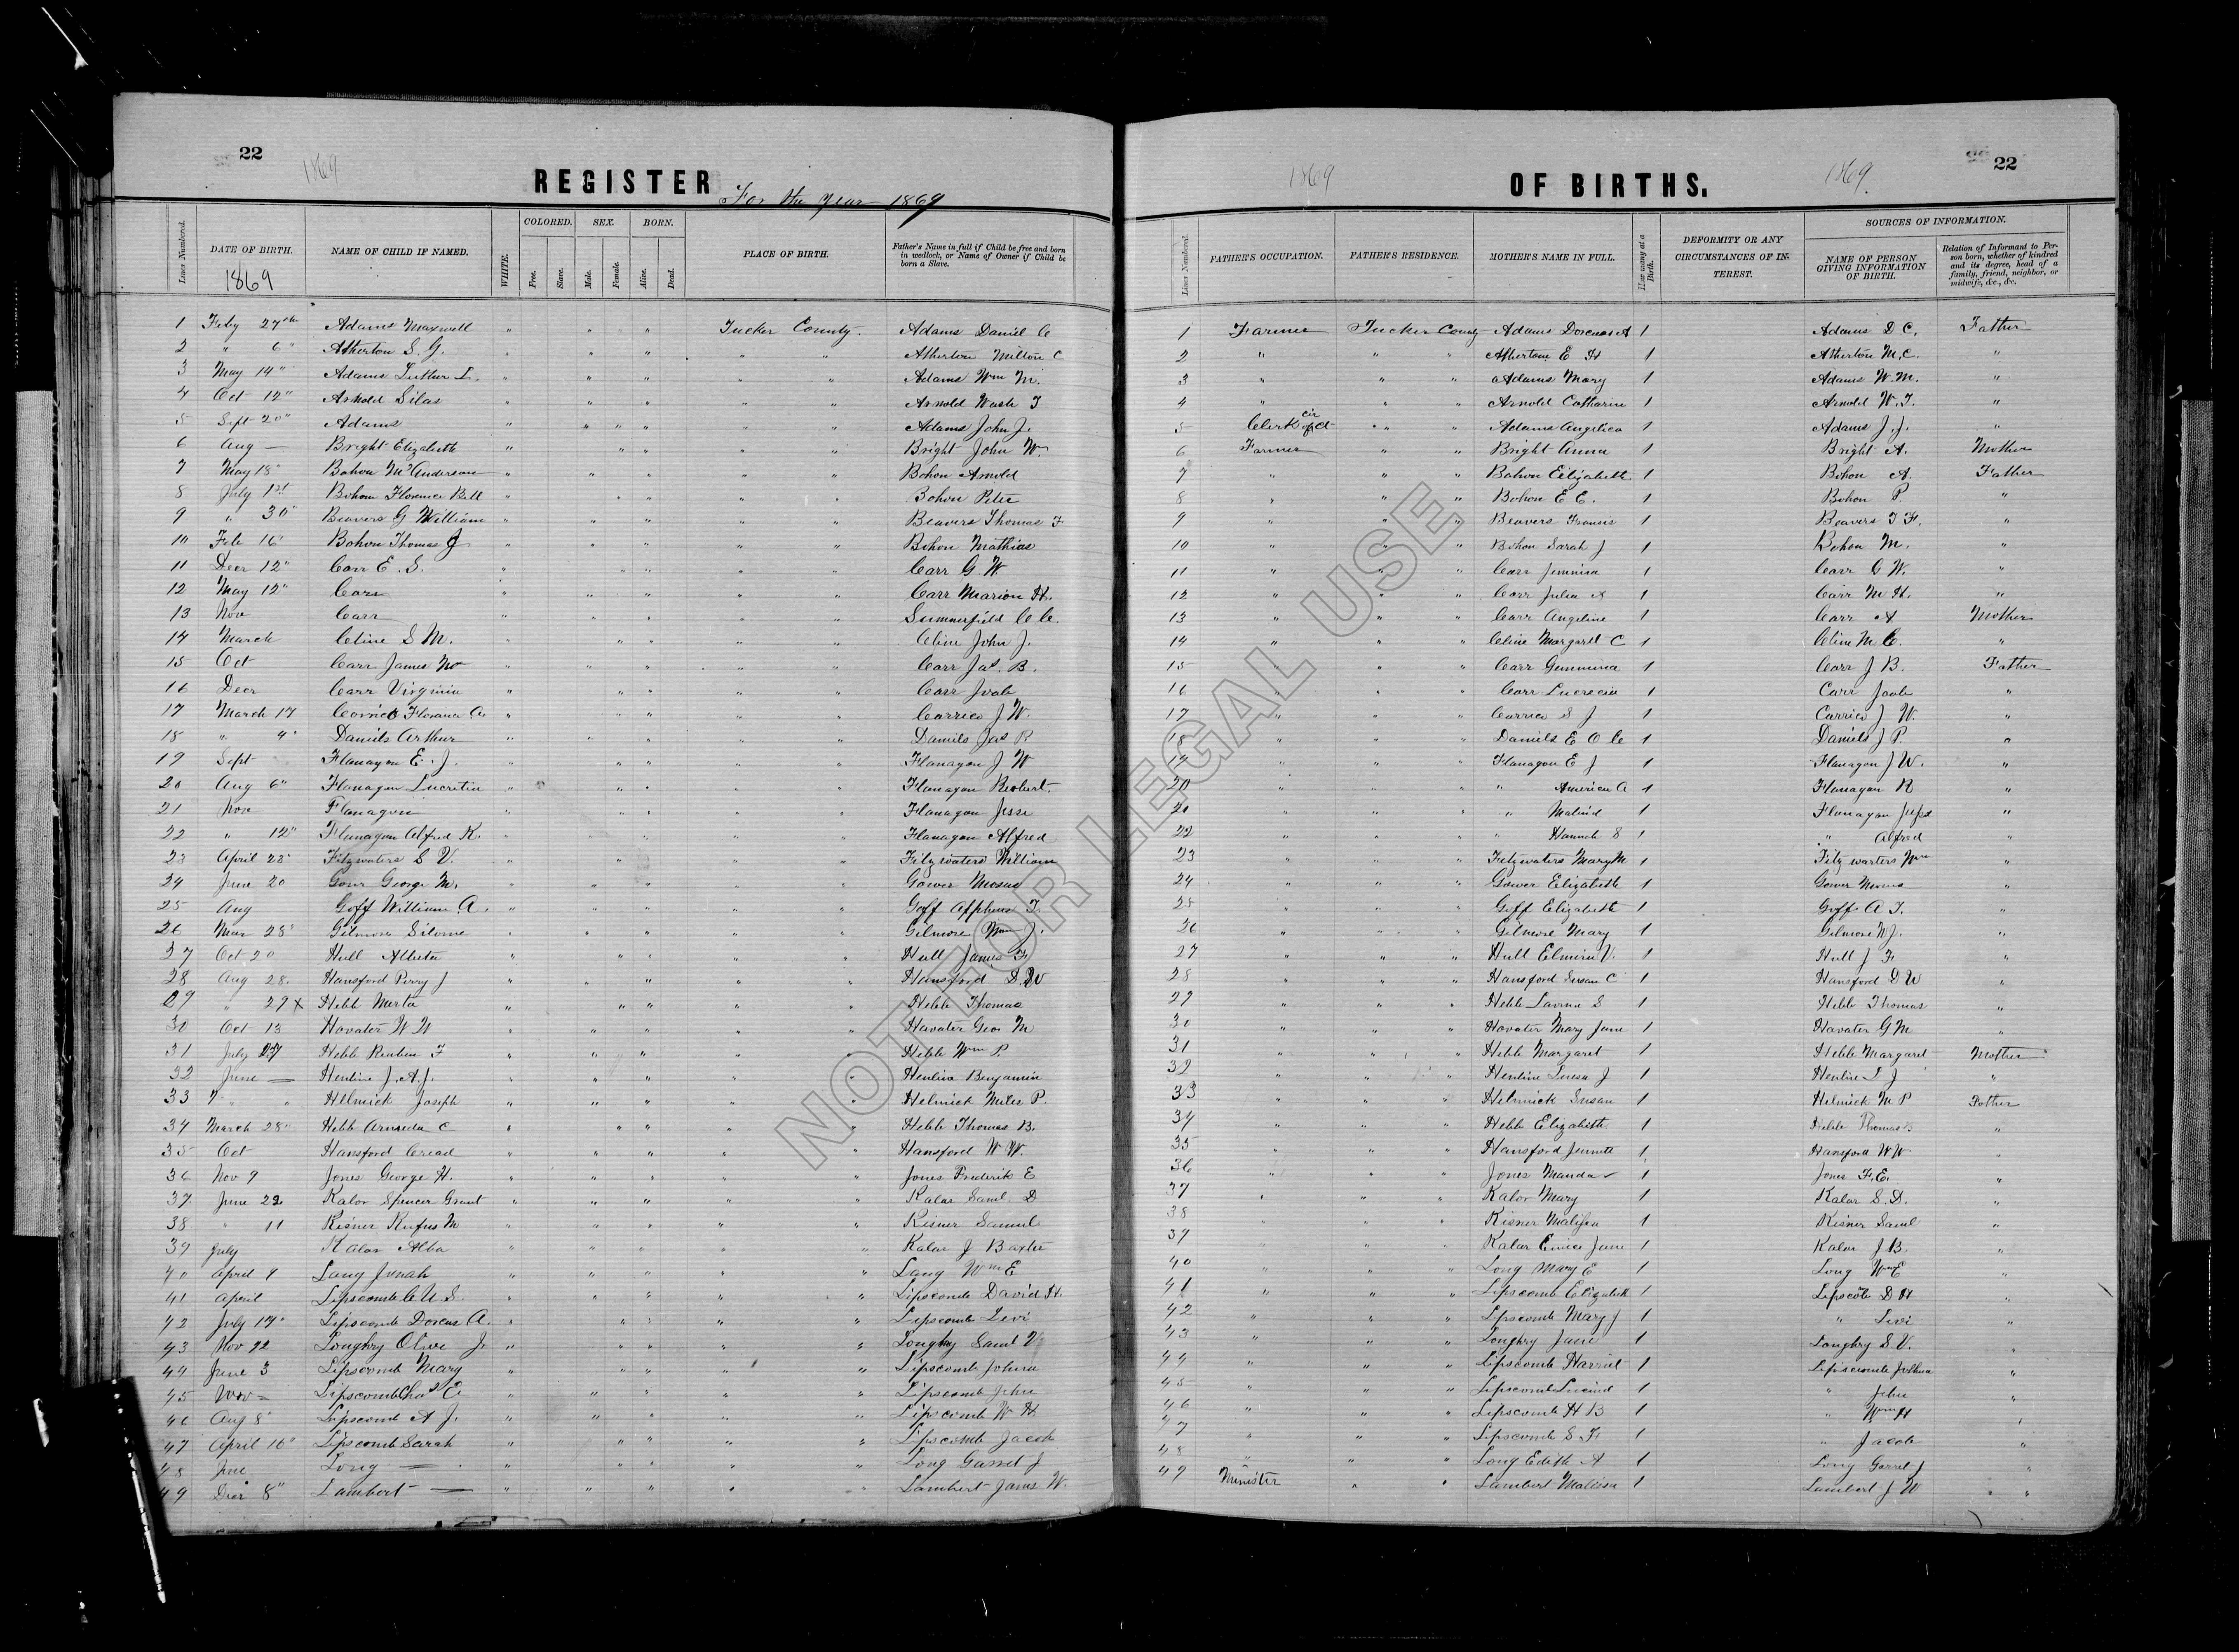 22
1869
REGISTER
For the year 1869
Lines Numbered.
DATE OF BIRTH.
1869
NAME OF CHILD IF NAMED.
WHITE.
COLORED.
Free.
Slave.
SEX.
Male.
Female.
BORN.
Alive.
Dead.
PLACE OF BIRTH.
Father's Name in full if Child be free and born in wedlock, or Name of Owner if Child be born a Slave.
1 Feby 27th Adams Maxwell " " " Tucker County. Adams Daniel C
2 " 6" Atherton S. G. " " " " " Atherton Milton C
3 May 14" Adams Luther L. " " " " " Adams Wm M.
4 Oct 12" Arnold Silas " " " " " Arnold Wash T
5 Sept 20" Adams " " " " " " Adams John J.
6 Aug — Bright Elizabeth " " " " " Bright John W.
7 May 18" Bohon Mc Anderson " " " " " Bohon Arnold
8 July 1st Bohon Florence Bell " " " " " Bohon Peter
9 " 30" Beavers G William " " " " " Beavers Thomas F
10 Feb 16" Bohon Thomas J " " " " " Bohon Mathias
11 Decr 12" Carr E. S. " " " " " Carr G. W.
12 May 12" Carr " " " " " Carr Marion H.
13 Nov Carr " " " " " Summerfield C C.
14 March Cline S M. " " " " " Cline John J.
15 Oct Carr James " " " " " Carr Jas. B.
16 Decr Carr Virginia " " " " " Carr Joab
17 March 17 Carrico Florance " " " " " Carrico J W.
18 " 4" Daniels Arthur " " " " " Daniels Jas P.
19 Sept Flanagon E. J. " " " " " Flanagon J W
20 Aug 6" Flanagan Lucretia " " " " " Flanagan Robert.
21 Nov Flanagon " " " " " Flanagan Jesse
22 " 12" Flanagan Alfred K. " " " " " Flanagan Alfred
23 April 28" Fitzwaters S V. " " " " " Fitzwaters William
24 June 20 George M. " " " " " Gower
25 Aug Goff William A. " " " " " Goff T.
26 Mar 28" Gilmore " " " " " Gilmore Wm J.
27 Oct 20 Hull " " " " " Hull James F.
28 Aug 28. Hansford Perry J " " " " " Hansford D. W
29 " 29 x Hebb " " " " " Hebb Thomas
30 Oct 13 Hovater W W " " " " " Havater Geo M
31 July 27 Hebb Reuben F " " " " " Hebb Wm P.
32 June — Henline J. A. J. " " " " " Henline Benjamin
33 " " Helmick Joseph " " " " " Helmick Miles P.
34 March 28" Hebb C " " " " " Hebb Thomas B.
35 Oct Hansford " " " " " Hansford W W.
36 Nov 9 Jones George H. " " " " " Jones Frederik E
37 June 22 Kalor Spencer Grant " " " " " Kalar Saml. D
38 " 11 Kisner Rufus M " " " " " Kisner Samuel
39 July Kalar Alba " " " " " Kalar J Baxter
40 April 9 Long " " " " " Long Wm E
41 April Lipscomb " " " " " Lipscomb David H.
42 July 17" Lipscomb Dorcus A. " " " " " Lipscomb Levi
43 Nov 22 Loughry Olive J. " " " " " Loughry Saml V
44 June 3 Lipscomb Mary " " " " " Lipscomb Johua
45 Nov — Lipscomb Chas E. " " " " " Lipscomb John
46 Aug 8" Lipscomb A J. " " " " " Lipscomb W H
47 April 16" Lipscomb Sarah " " " " " Lipscomb Jacob
48 June Long — " " " " " Long Garret J
49 Decr 8" Lambert — " " " " " Lambert James W.
22
1869
1869.
OF BIRTHS.
Lines Numbered.
FATHER'S OCCUPATION.
FATHER'S RESIDENCE.
MOTHER'S NAME IN FULL.
How many at a Birth.
DEFORMITY OR ANY CIRCUMSTANCES OF INTEREST.
SOURCES OF INFORMATION.
NAME OF PERSON GIVING INFORMATION OF BIRTH.
Relation of Informant to Person born, whether of kindred and its degree, head of a family, friend, neighbor, or midwife, &c., &c.
1 Farmer Tucker County Adams Dorcas A 1 Adams D C. Father
2 " " " Atherton E H 1 Atherton M. C. "
3 " " " Adams Mary 1 Adams W. M. "
4 " " " Arnold Catharine 1 Arnold W. T. "
5 Clerk of cir ct " " Adams Angelica 1 Adams J. J. "
6 Farmer " " Bright Anna 1 Bright A. Mother
7 " " " Bohon Elizabeth 1 Bohon A. Father
8 " " " Bohon E E. 1 Bohon P. "
9 " " " Beavers Francis 1 Beavers T F. "
10 " " " Bohon Sarah J 1 Bohon M. "
11 " " " Carr 1 Carr G W. "
12 " " " Carr Julia A 1 Carr M H. "
13 " " " Carr Angeline 1 Carr A Mother
14 " " " Cline Margaret C 1 Cline M. C. "
15 " " " Carr 1 Carr J B. Father
16 " " " Carr Lucrecia 1 Carr Joab "
17 " " " Carrico S J 1 Carrico J W. "
18 " " " Daniels E O C 1 Daniels J P. "
19 " " " Flanagon E J 1 Flanagon J W. "
20 " " " " America A 1 Flanagan R "
21 " " " " Malind 1 Flanagan Jesse "
22 " " " " Hannah S 1 " Alfred "
23 " " " Fitzwaters Mary M 1 Fitzwarters Wm "
24 " " " Gower Elizabeth 1 Gower "
25 " " " Goff Elizabeth 1 Goff A T. "
26 " " " Gilmore Mary 1 Gilmore W J. "
27 " " " Hull V. 1 Hull J F "
28 " " " Hansford Susan C 1 Hansford D W "
29 " " " Hebb S 1 Hebb Thomas "
30 " " " Hovater Mary Jane 1 Havater G M "
31 " " " Hebb Margaret 1 Hebb Margaret Mother
32 " " " Henline J 1 Henline J "
33 " " " Helmick Susan 1 Helmick M P Father
34 " " " Hebb Elizabeth 1 Hebb Thomas B "
35 " " " Hansford 1 Hansford W W "
36 " " " Jones Manda 1 Jones F. E. "
37 " " " Kalor Mary 1 Kalar S. D. "
38 " " " Kisner 1 Kisner Saml "
39 " " " Kalar Jane 1 Kalar J B. "
40 " " " Long Mary E 1 Long Wm E "
41 " " " Lipscomb Elizabeth 1 D H "
42 " " " Lipscomb Mary J 1 " Levi "
43 " " " Loughry Jane 1 Loughry S. V. "
44 " " " Lipscomb Harriet 1 Lipscomb Joshua "
45 " " " Lipscomb Lucind 1 " John "
46 " " " Lipscomb H B 1 " Wm H "
47 " " " Lipscomb S F. 1 " Jacob "
48 " " " Long Edith A 1 Long Garret J "
49 Minister " " Lambert Malissa 1 Lambert J W " "
22
NOT FOR LEGAL USE